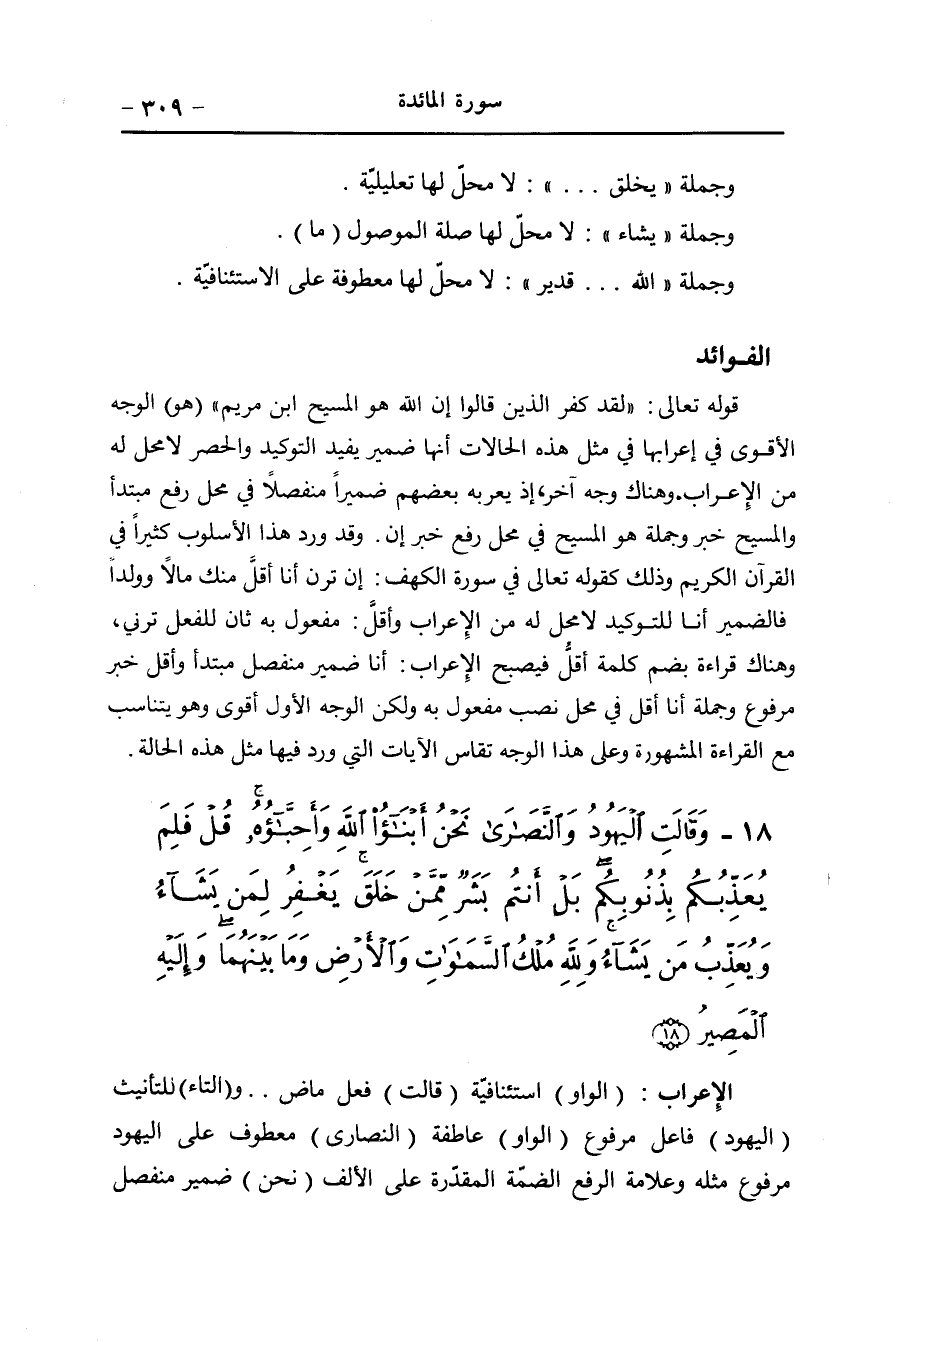 سورة المائدة - ٣٠٩ -
وجملة « يخلق . . . » : لا محلّ لها تعليليّة .
وجملة « يشاء » : لا محلّ لها صلة الموصول ( ما ) .
وجملة « الله . . . قدير » : لا محلّ لها معطوفة على الاستئنافيّة .
الفـوائد
قوله تعالى : «لقد كفر الذين قالوا إن الله هو المسيح ابن مريم» (هو) الوجه
الأقـوى في إعرابها في مثل هذه الحالات أنها ضمير يفيد التوكيد والحصر لا محل له
من الإعـراب. وهناك وجه آخر، إذ يعربه بعضهم ضميراً منفصلًا في محل رفع مبتدأ
والمسيح خبر وجملة هو المسيح في محل رفع خبر إن . وقد ورد هذا الأسلوب كثيراً في
القرآن الكريم وذلك كقوله تعالى في سورة الكهف : إن ترن أنا أقلَّ منك مالاً وولداً
فالضمير أنـا للتـوكيد لا محل له من الإعراب وأقلَّ : مفعول به ثان للفعل ترني ،
وهناك قراءة بضم كلمة أقلُّ فيصبح الإعراب : أنا ضمير منفصل مبتدأ وأقل خبر
مرفوع وجملة أنا أقل في محل نصب مفعول به ولكن الوجه الأول أقوى وهو يتناسب
مع القراءة المشهورة وعلى هذا الوجه تقاس الآيات التي ورد فيها مثل هذه الحالة .
١٨ - وَقَالَتِ ٱلْيَهُودُ وَٱلنَّصَـٰرَىٰ نَحْنُ أَبْنَـٰٓؤُا۟ ٱللَّهِ وَأَحِبَّـٰٓؤُهُۥ ۚ قُلْ فَلِمَ
يُعَذِّبُكُم بِذُنُوبِكُم ۖ بَلْ أَنتُم بَشَرٌ مِّمَّنْ خَلَقَ ۚ يَغْفِرُ لِمَن يَشَآءُ
وَيُعَذِّبُ مَن يَشَآءُ ۚ وَلِلَّهِ مُلْكُ ٱلسَّمَـٰوَٰتِ وَٱلْأَرْضِ وَمَا بَيْنَهُمَا ۖ وَإِلَيْهِ
ٱلْمَصِيرُ (١٨)
الإعراب : ( الواو ) استئنافيّة ( قالت ) فعل ماض . . و(التاء) للتأنيث
( اليهود ) فاعل مرفوع ( الواو ) عاطفة ( النصارى ) معطوف على اليهود
مرفوع مثله وعلامة الرفع الضمّة المقدّرة على الألف ( نحن ) ضمير منفصل